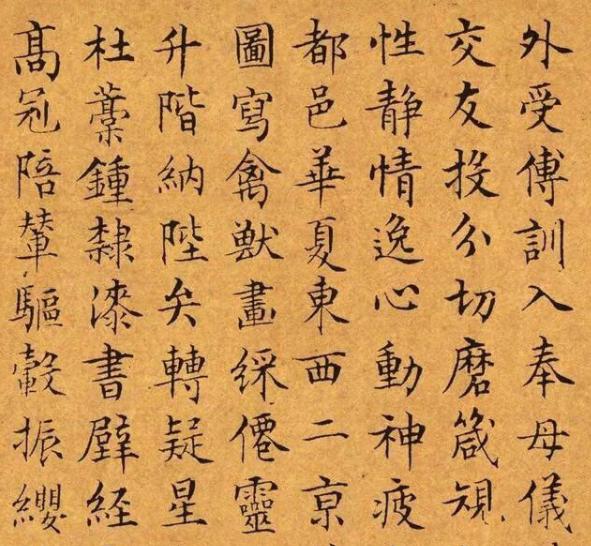 外受傅訓入奉母儀
交友投分切磨箴規
性静情逸心動神疲
都邑華夏東西二京
圖寫禽獸畫綵僊靈
升階納陛矣轉疑星
杜藁鍾隸漆書壁経
髙冠陪輦驅轂振纓